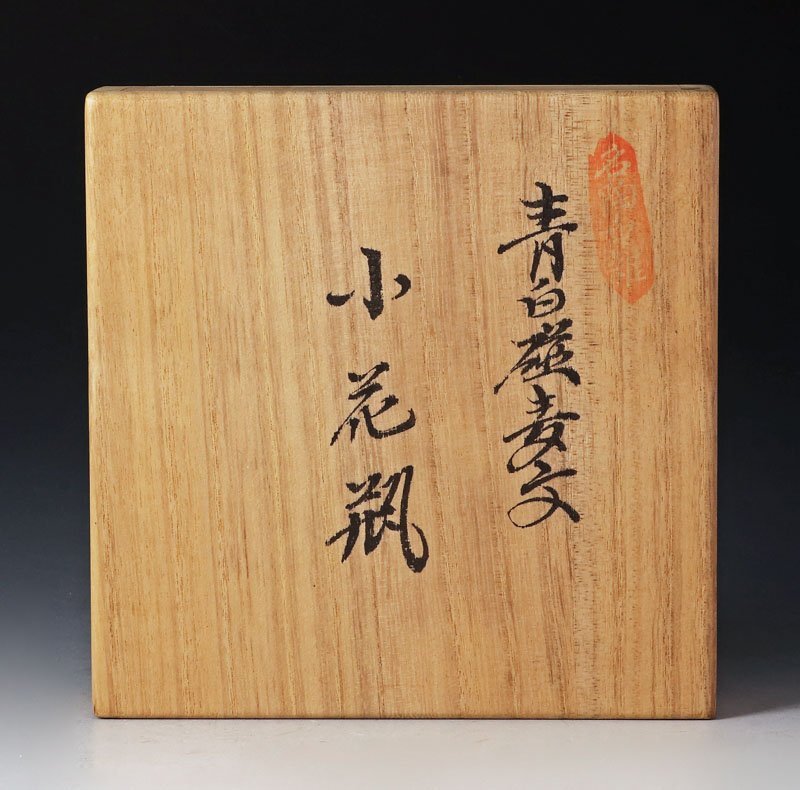 青白磁麦文
小花瓶